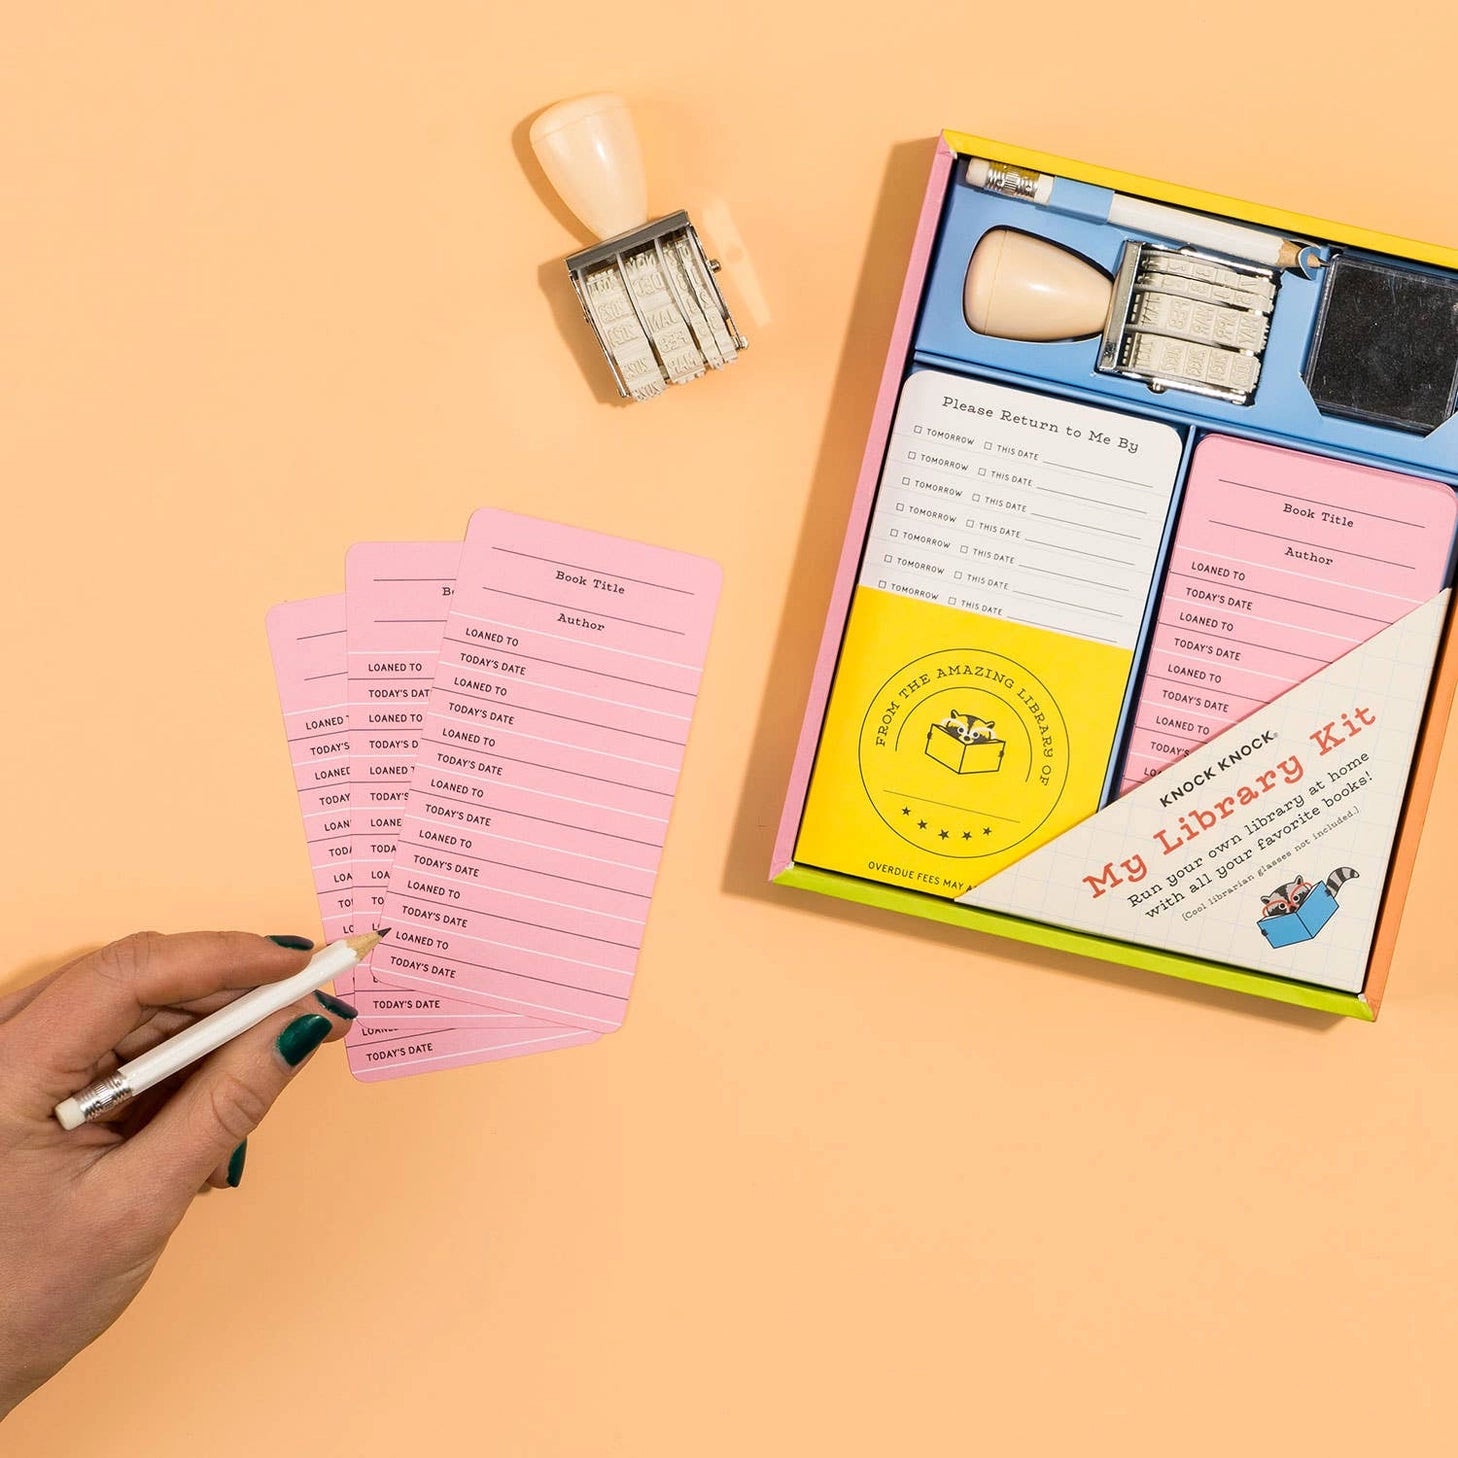 Book Title
Author
LOANED TO
TODAY'S DATE
LOANED TO
TODAY'S DATE
LOANED TO
TODAY'S DATE
LOANED TO
TODAY'S DATE
LOANED TO
TODAY'S DATE
LOANED TO
TODAY'S DATE
LOANED TO
TODAY'S DATE
LOANED TO
TODAY'S DATE
LOANED TO
TODAY'S DATE
TODAY'S DATE
Please Return to Me By
TOMORROW THIS DATE
TOMORROW THIS DATE
TOMORROW THIS DATE
TOMORROW THIS DATE
TOMORROW THIS DATE
TOMORROW THIS DATE
TOMORROW THIS DATE
FROM THE AMAZING LIBRARY OF
OVERDUE FEES MAY
Book Title
Author
LOANED TO
TODAY'S DATE
LOANED TO
TODAY'S DATE
LOANED TO
TODAY'S DATE
LOANED TO
TODAY'S
KNOCK KNOCK®
My Library Kit
Run your own library at home
with all your favorite books!
[Cool librarian glasses not included.]